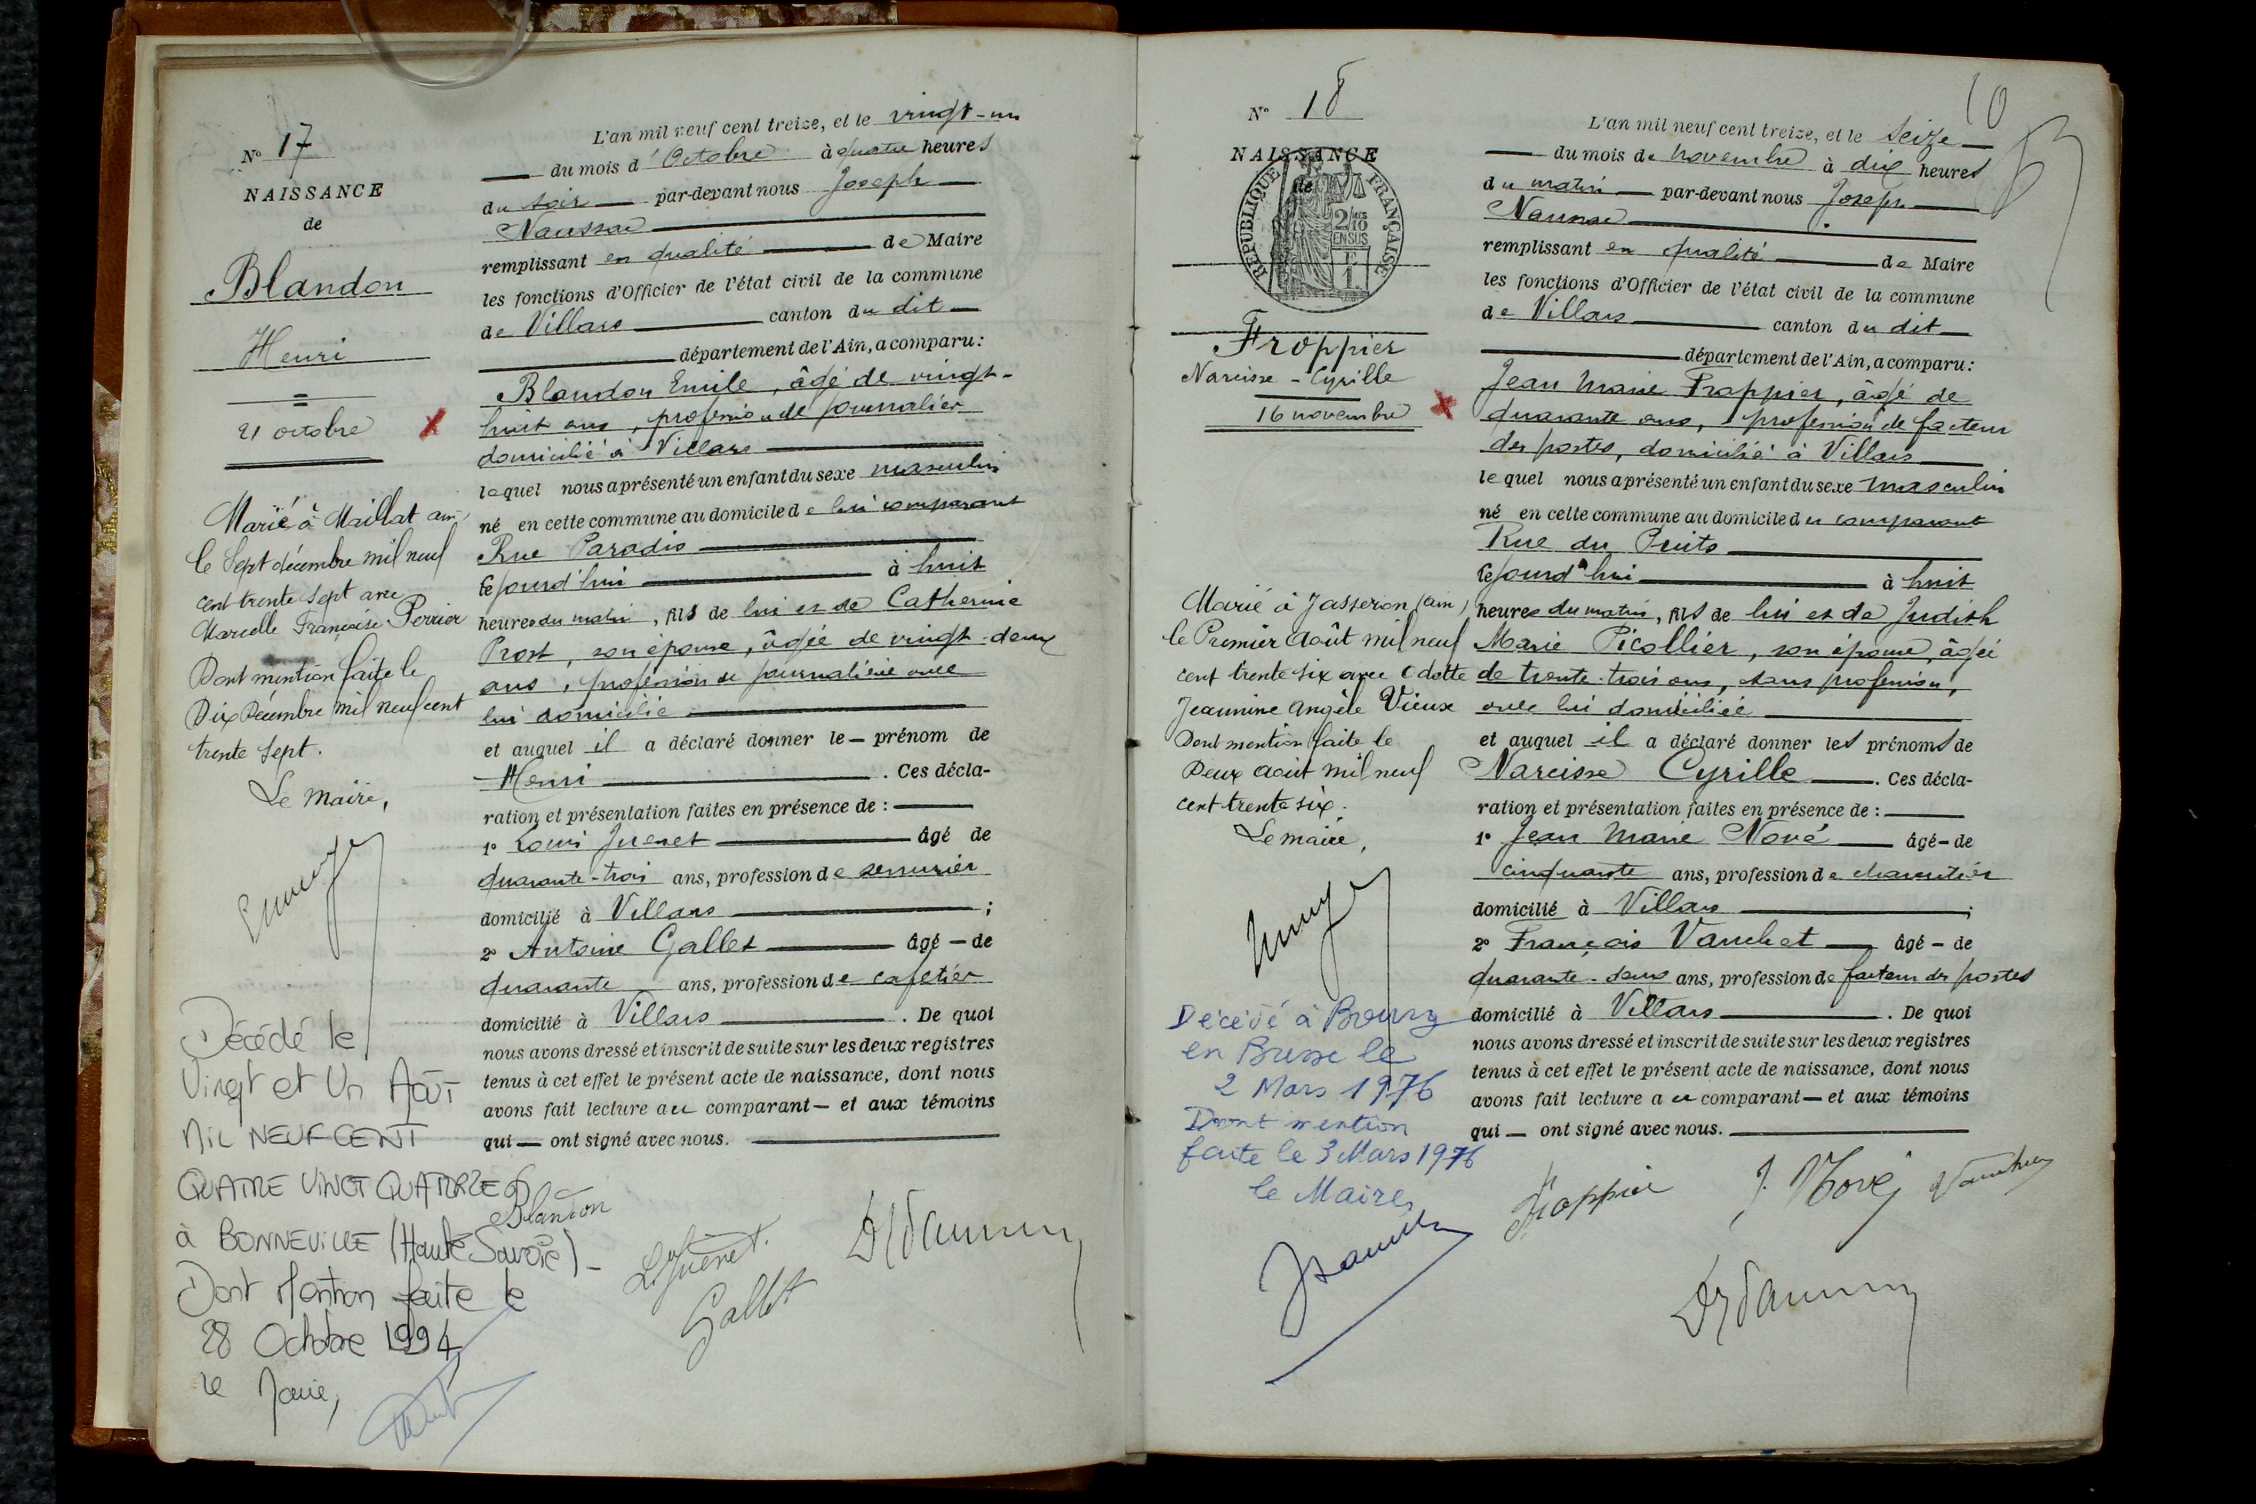 N° 17
NAISSANCE
de
Blandon
Henri
21 octobre
Marié à Maillat ain,
le Sept décembre mil neuf
cent trente sept avec
Marcelle Françoise Perrier
Dont mention faite le
Dix Décembre mil neuf cent
trente sept.
Le Maire,
Décédé le
Vingt et Un Août
MIL NEUF CENT
QUATRE VINGT QUATORZE
à BONNEVILLE (Haute Savoie) -
Dont Mention faite le
28 Octobre 1994
le Maire,
L'an mil neuf cent treize, et le vingt-un
du mois d'Octobre à quatre heures
du soir par-devant nous Joseph
remplissant en qualité de Maire
les fonctions d'Officier de l'état civil de la commune
de Villars canton du dit
département de l'Ain, a comparu:
Blandon Emile, âgé de vingt-
huit ans, profession de journalier
domicilié à Villars
lequel nous a présenté un enfant du sexe masculin
né en cette commune au domicile de lui comparant
Rue Paradis
Cejourd'hui à huit
heures du matin, fils de lui et de Catherine
Prost, son épouse, âgée de vingt-deux
ans, profession de journalière avec
lui domicilié
et auquel il a déclaré donner le — prénom de
Henri . Ces décla-
ration et présentation faites en présence de :
1° Louis Juenet âgé de
quarante-trois ans, profession de serrurier
domicilié à Villars ;
2° Antoine Gallet âgé — de
quarante ans, profession de cafetier
domicilié à Villars . De quoi
nous avons dressé et inscrit de suite sur les deux registres
tenus à cet effet le présent acte de naissance, dont nous
avons fait lecture au comparant — et aux témoins
qui — ont signé avec nous.
Blandon
L. Juenet.
Gallet
10
N° 18
NAISSANCE
de
RÉPUBLIQUE FRANÇAISE
2/10
EN SUS
Froppier
Narcisse - Cyrille
16 novembre
Marié à Jasseron (ain)
le Premier Août mil neuf
cent trente six avec Odette
Jeannine Angèle Vieux
Dont mention faite le
Deux Août mil neuf
cent trente six.
Le maire,
Décédé à Bourg
en Bresse le
2 Mars 1976
Dont mention
faite le 3 Mars 1976
le Maire,
L'an mil neuf cent treize, et le seize
du mois de novembre à dix heures
du matin par-devant nous Joseph
remplissant en qualité de Maire
les fonctions d'Officier de l'état civil de la commune
de Villars canton du dit
département de l'Ain, a comparu:
Jean Marie Frappier, âgé de
quarante ans, profession de facteur
des postes, domicilié à Villars
lequel nous a présenté un enfant du sexe masculin
né en cette commune au domicile du comparant
Rue du Puits
Cejourd'hui à huit
heures du matin, fils de lui et de Judith
Marie Picollier, son épouse, âgée
de trente-trois ans, sans profession,
avec lui domiciliée
et auquel il a déclaré donner les prénoms de
Narcisse Cyrille . Ces décla-
ration et présentation faites en présence de :
1° Jean Marie Nové âgé — de
cinquante ans, profession de charcutier
domicilié à Villars ;
2° François Vauchet âgé — de
quarante-deux ans, profession de facteur des postes
domicilié à Villars . De quoi
nous avons dressé et inscrit de suite sur les deux registres
tenus à cet effet le présent acte de naissance, dont nous
avons fait lecture au comparant — et aux témoins
qui — ont signé avec nous.
Froppier
J. Nové